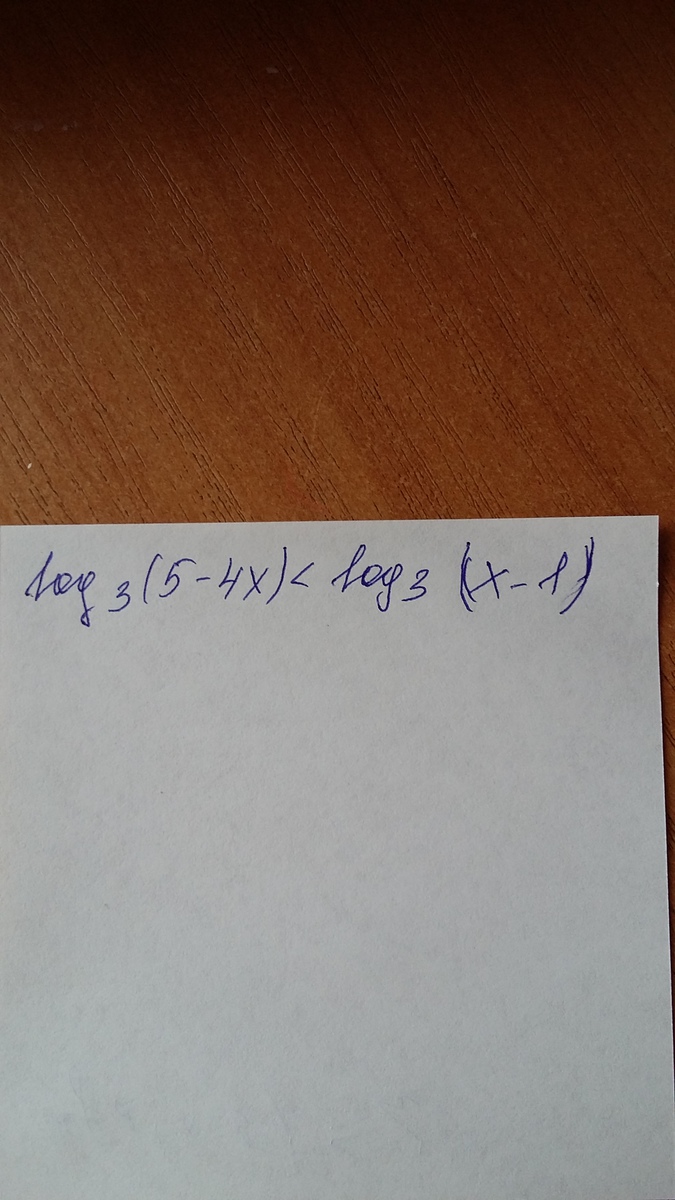 log₃(5-4x)< log₃ (x-1)